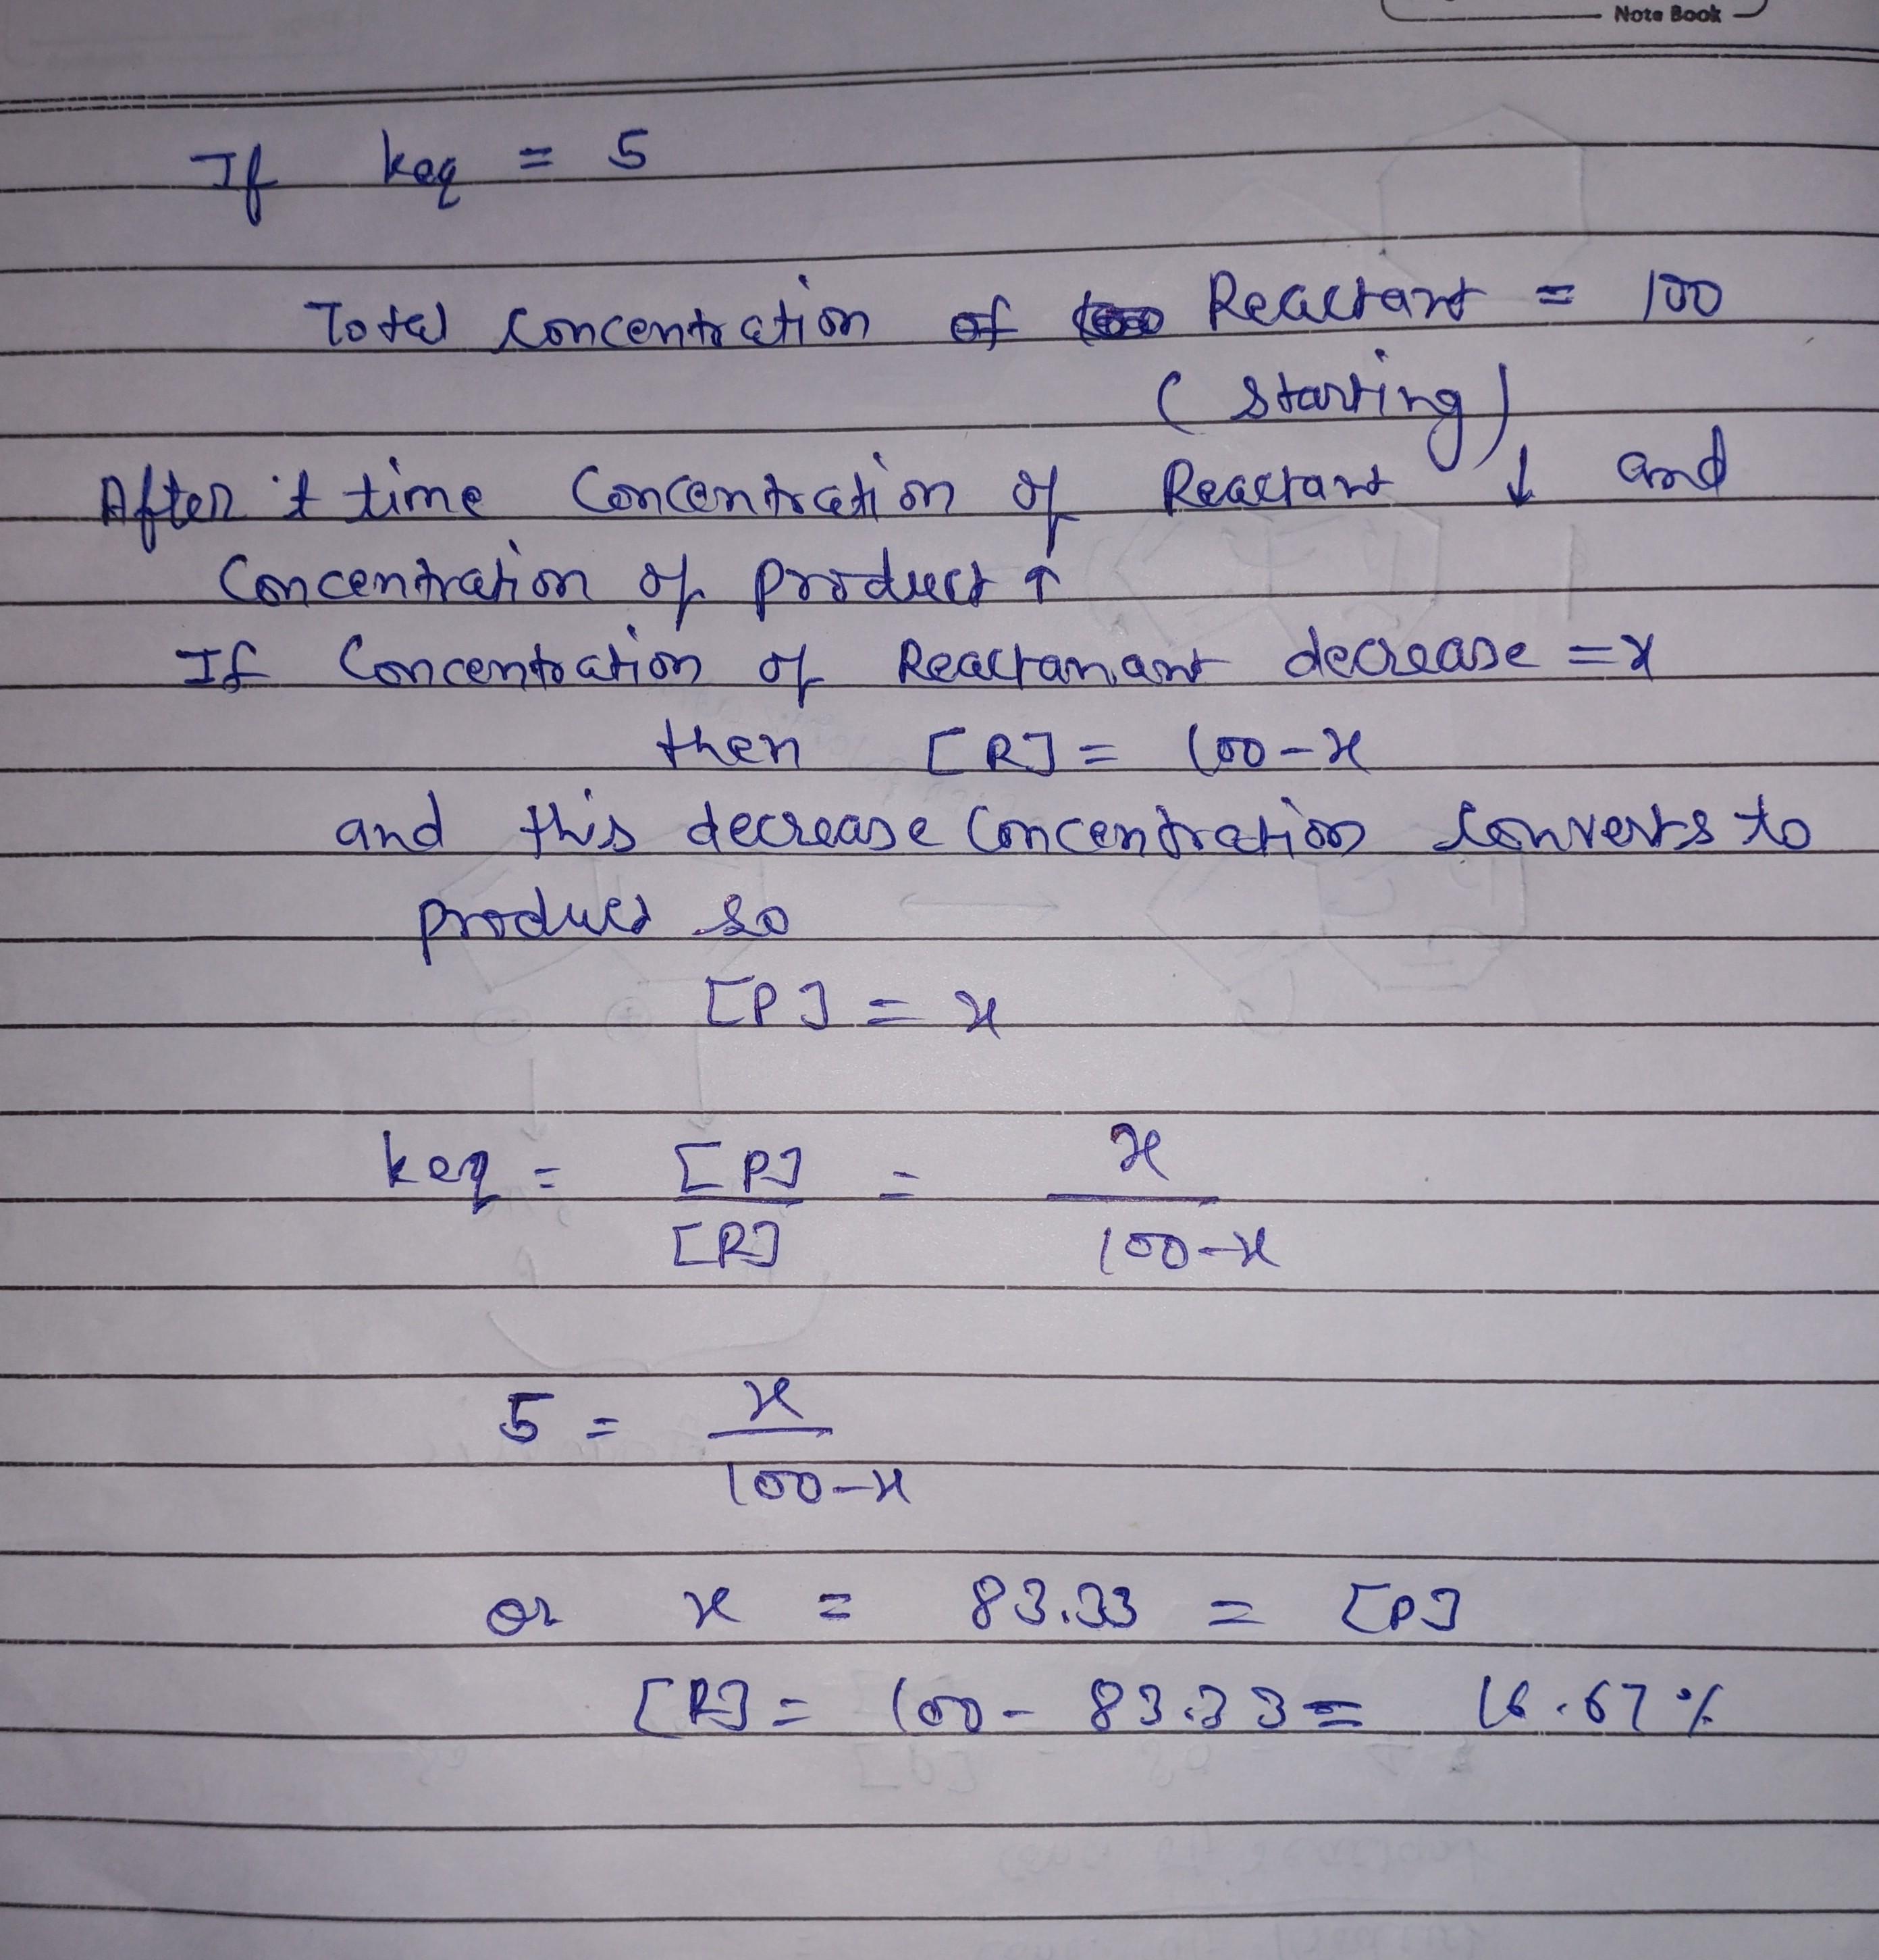 Note Book
If keq = 5
Total concentration of Reactant = 100
(starting)
After 't time Concentration of Reactant ↓ and
Concentration of product ↑
If Concentration of Reactanant decrease = x
then [R] = 100-x
and this decrease concentration converts to
product so
[P] = x
keq = [P] = x
[R] 100-x
5 = x
100-x
or x = 83.33 = [P]
[R] = 100 - 83.33 = 16.67 %